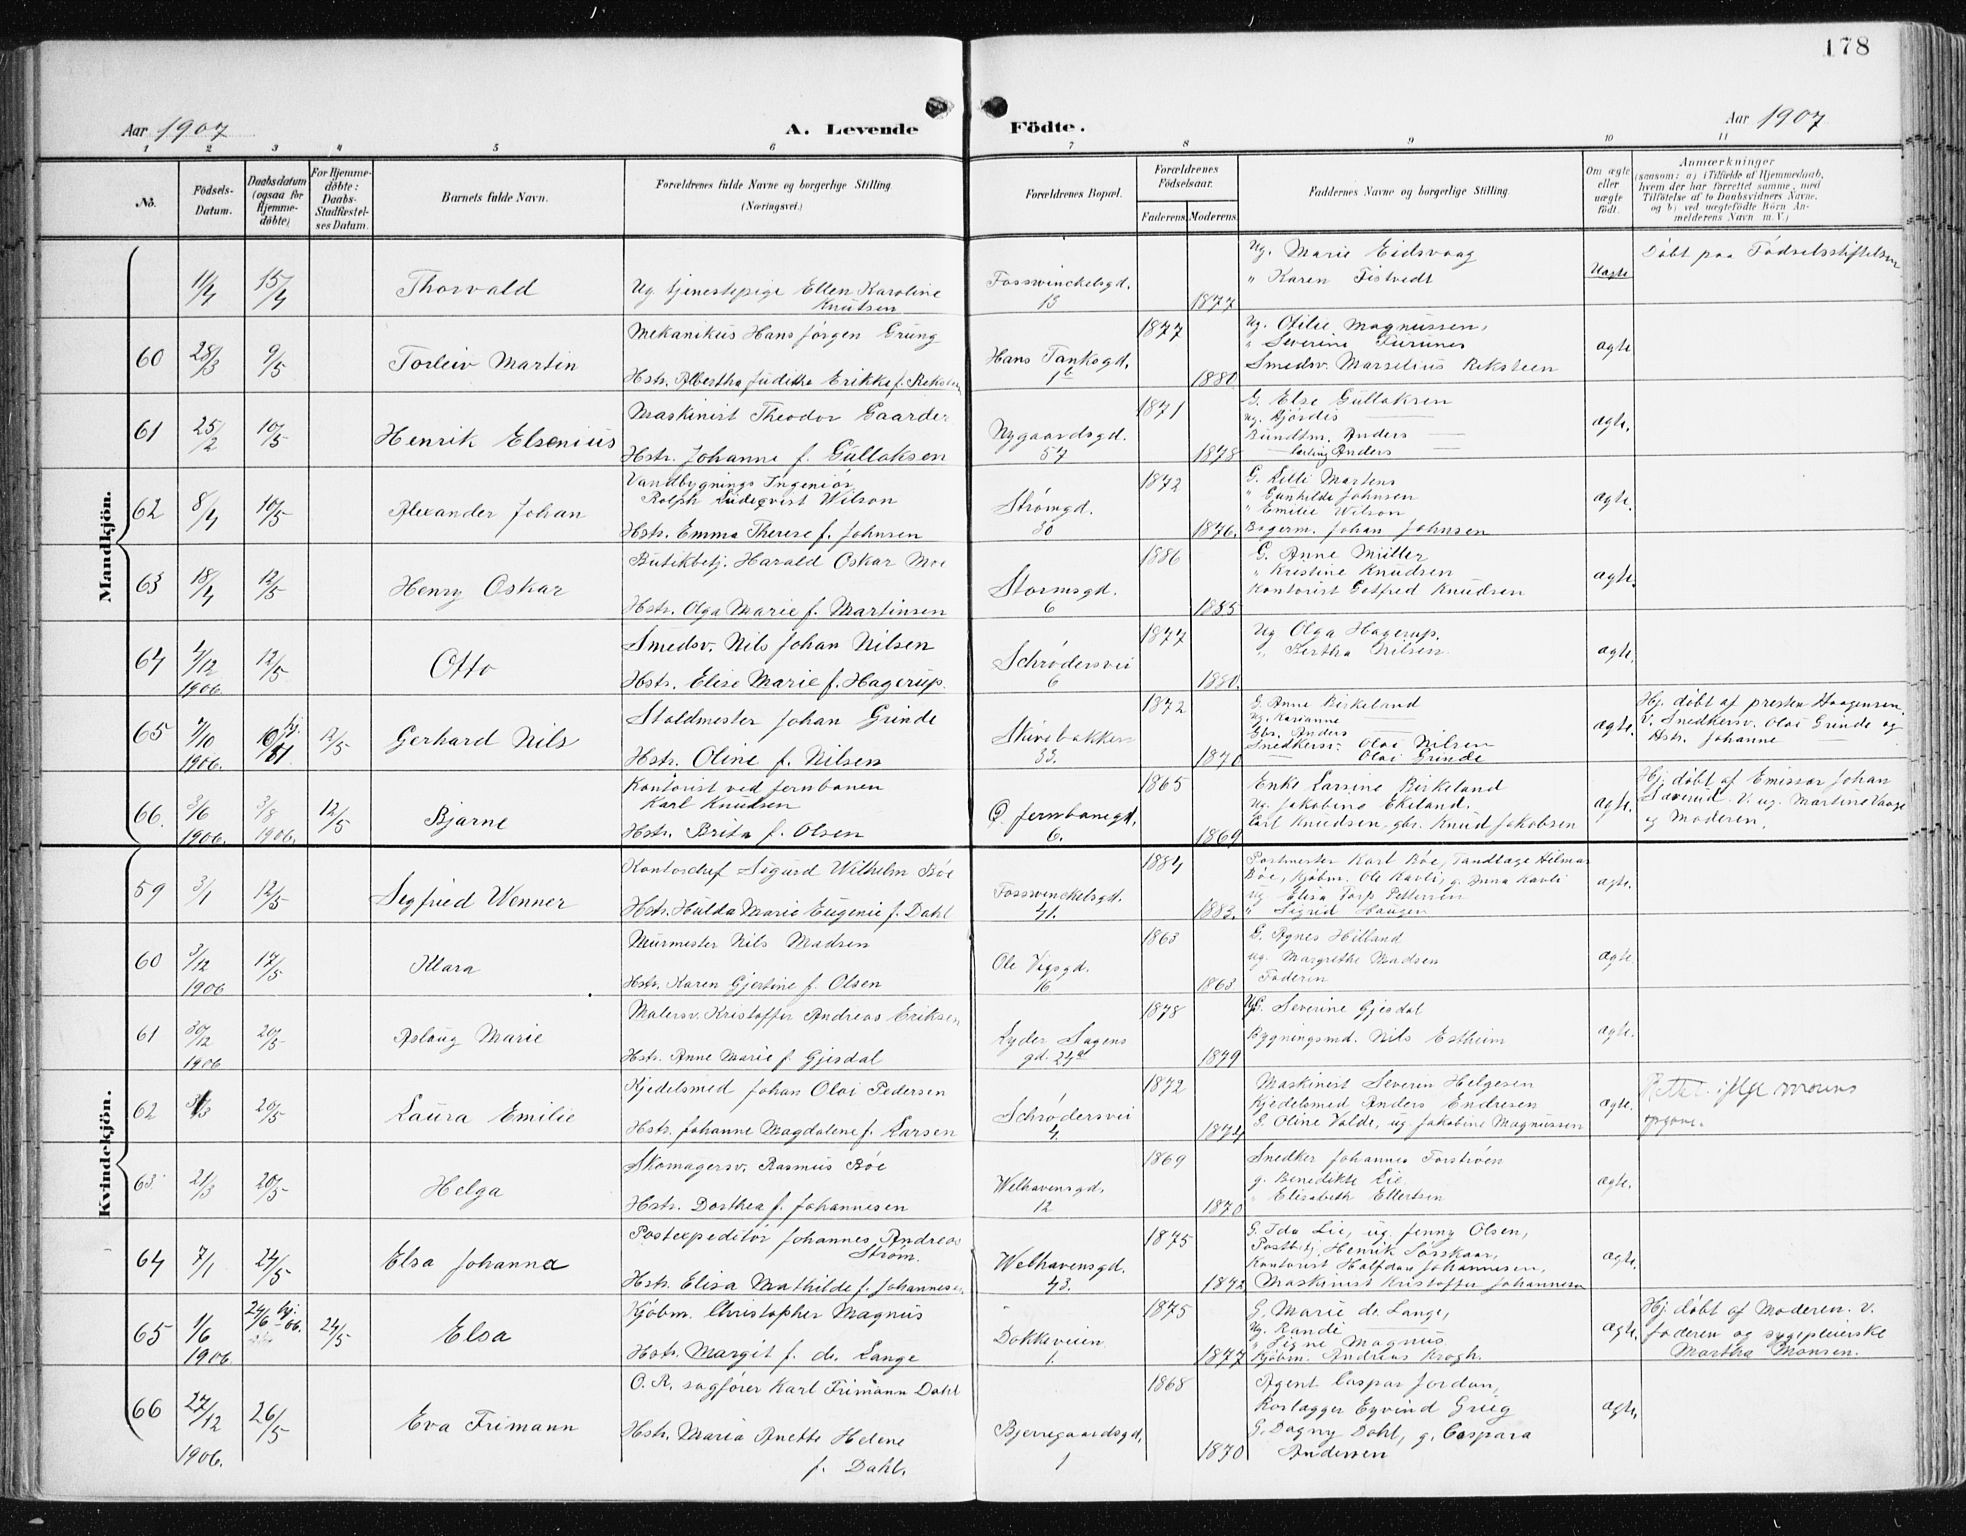 178
Aar 1907
A. Levende Födte.
Aar 1907
1 2 3 4 5 6 7 8 9 10 11
No.
Födsels-Datum.
Daabsdatum (ogsaa for Hjemme-döbte)
For Hjemme-döbte: Daabs-Stadfæstel-ses Datum.
Barnets fulde Navn.
Forældrenes fulde Navne og borgerlige Stilling. (Næringsvei.)
Forældrenes Bopæl.
Forældrenes Födselsaar.
Faderens. Moderens.
Faddernes Navne og borgerlige Stilling.
Om ægte eller uægte födt.
Anmærkninger
(saasom: a) i Tilfælde af Hjemmedaab, hvem der har forrettet samme, med Tilföielse af to Daabsvidners Navne, og b) ved uægtefödte Börn An-melderens Navn m. V.)
Mandkjön.
11/4 15/4 Thorvald
Ug. tjenestepige Ellen Karoline Knutsen
Fosswinckelsgd. 13
1877
Ug. Marie Eidsvaag
" Karen Fistvedt
Uægte
Døbt paa Fødselsstiftelsen
60 28/3 9/5 Torleiv Martin
Mekanikus Hans Jørgen Grung
Hstr. Albertha Juditha Erikke f. Reksteen
Hans Tanksgd. 1b
1877 1880
Ug. Otilie Magnussen,
" Severine
Smedsv. Marselius Reksteen
ægte
61 25/2 10/5 Henrik Elsenius
Maskinist Theodor Gaarder
Hstr. Johanne f. Gullaksen
Nygaardsgd. 57
1871 1878
G. Else Gullaksen
Ug. Hjørdis —
Bundtm. Anders —
— Anders —
ægte.
62 8/4 10/5 Alexander Johan
Vandbygnings Ingeniør
Rolph Lindeqvist Wilson
Hstr. Emma Therese f. Johnsen
Strømgd. 30
1872 1876.
G. Lilli Martens
" Gunhilde Johnsen
" Emilie Wilson
Bagerm. Johan Johnsen
ægte.
63 18/4 12/5 Henry Oskar
Butikbetj. Harald Oskar Moe
Hstr. Olga Marie f. Martinsen
Stormsgd. 6
1886 1885
G. Anne Müller
" Kristine Knudsen
Kontorist Gotfred Knudsen
ægte.
64 7/12 1906. 12/5 Otto
Smedsv. Nils Johan Nilsen
Hstr. Elise Marie f. Hagerup.
Schrødersvei 6
1877 1880.
Ug Olga Hagerup.
" Bertha Nilsen.
ægte.
65 7/10 1906. 12/5 Gerhard Nils
Staldmester Johan Grinde
Hstr. Oline f. Nilsen
Skivebakken 33.
1872 1870
G. Anne Birkeland
Ug. Marianne
Gbr. Anders —
Snedkersv. Olai Nilsen
— Olai Grinde
ægte.
Hj. døbt af presten Haagensen.
V. Snedkersv. Olai Grinde og
Hstr. Johanne
66. 3/6 1906. 3/8 1906. 12/5 Bjarne
Kontorist ved jernbanen
Karl Knudsen
Hstr. Brita f. Olsen
Ø jernbanegd. 6.
1865 1869
Enke Larsine Birkeland
Ug. Jakobine Ekeland.
Carl Knudsen, gbr. Knud Jakobsen
ægte.
Hj. døbt af Emissær Johan
Sæverud. V. ug. Martine Vaage
og Moderen.
Kvindekjön.
59 3/1 12/5 Segfried Wenner
Kontorchef Sigurd Wilhelm Bøe
Hstr. Hulda Marie Eugenie f. Dahl
Fosswinckelsgd. 41.
1884 1883.
Postmester Karl Bøe, Tandlæge Hilmar
Bøe, Kjøbm. Ole Kavli, g. Inna Kavli
Ug Elisa Torp Pettersen
" Sigrid Haugen
ægte.
60 3/12 1906 17/5 Klara
Murmester Nils Madsen
Hstr. Karen Gjertine f. Olsen
Ole Vigsgd. 16
1863 1863
G. Agnes Hilland
ug. Margrethe Madsen
Faderen
ægte.
61 30/12 1906 20/5 Aslaug Marie
Malersv. Kristoffer Andreas Eriksen
Hstr. Anne Marie f. Gjesdal
Lyder Sagens gd. 24a
1878 1879
G. Severine Gjesdal
Bygningsmd. Nils Estheim
ægte.
62 20/5 Laura Emilie
Kjedelsmed Johan Olai Pedersen
Hstr. Johanne Magdalene f. Larsen
Schrødersvei 4
1872 1874
Maskinist Severin Helgesen
Kjedelsmed Anders Endresen
G. Oline Valde, ug. Jakobine Magnussen
ægte.
Rettet ifølge morens
opgave.
63 21/3 20/5 Helga
Skomagersv. Rasmus Bøe
Hstr. Dorthea f. Johannesen
Welhavensgd. 12
1869 1870
Snedker Johannes Torstrøen
g. Benedikte Lie
" Elisabeth Ellertsen
ægte.
64 7/1 24/5 Elsa Johanna
Postexpeditör Johannes Andreas Strøm.
Hstr. Elisa Mathilde f. Johannesen.
Welhavensgd. 43.
1875 1872
G. Ida Lie, ug. Jenny Olsen,
Postbetj. Henrik Sørskaar,
Kontorist Halfdan Johannesen,
Maskinist Kristoffer Johannesen
ægte.
65 1/6 1906 24/6 hj. 06. 24/5 Elsa
Kjøbm. Christopher Magnus
Hstr. Margit f. de Lange
Dokkeveien 1.
1875 1877
G. Marie de Lange,
Ug. Randi —
" Signe Magnus
Kjøbm. Andreas Krogh.
ægte.
Hj. døbt af Moderen. V.
faderen og sygepleierske
Martha Monsen.
66 27/12 1906. 26/5 Eva Frimann
O. R. sagfører Karl Frimann Dahl
Hstr. Maria Anette Helene
f. Dahl.
Bjerregaardsgd. 1
1868 1870
Agent Caspar Jordan,
Korlægger Eyvind Grieg
G. Dagny Dahl, g. Caspara
Andersen
ægte.